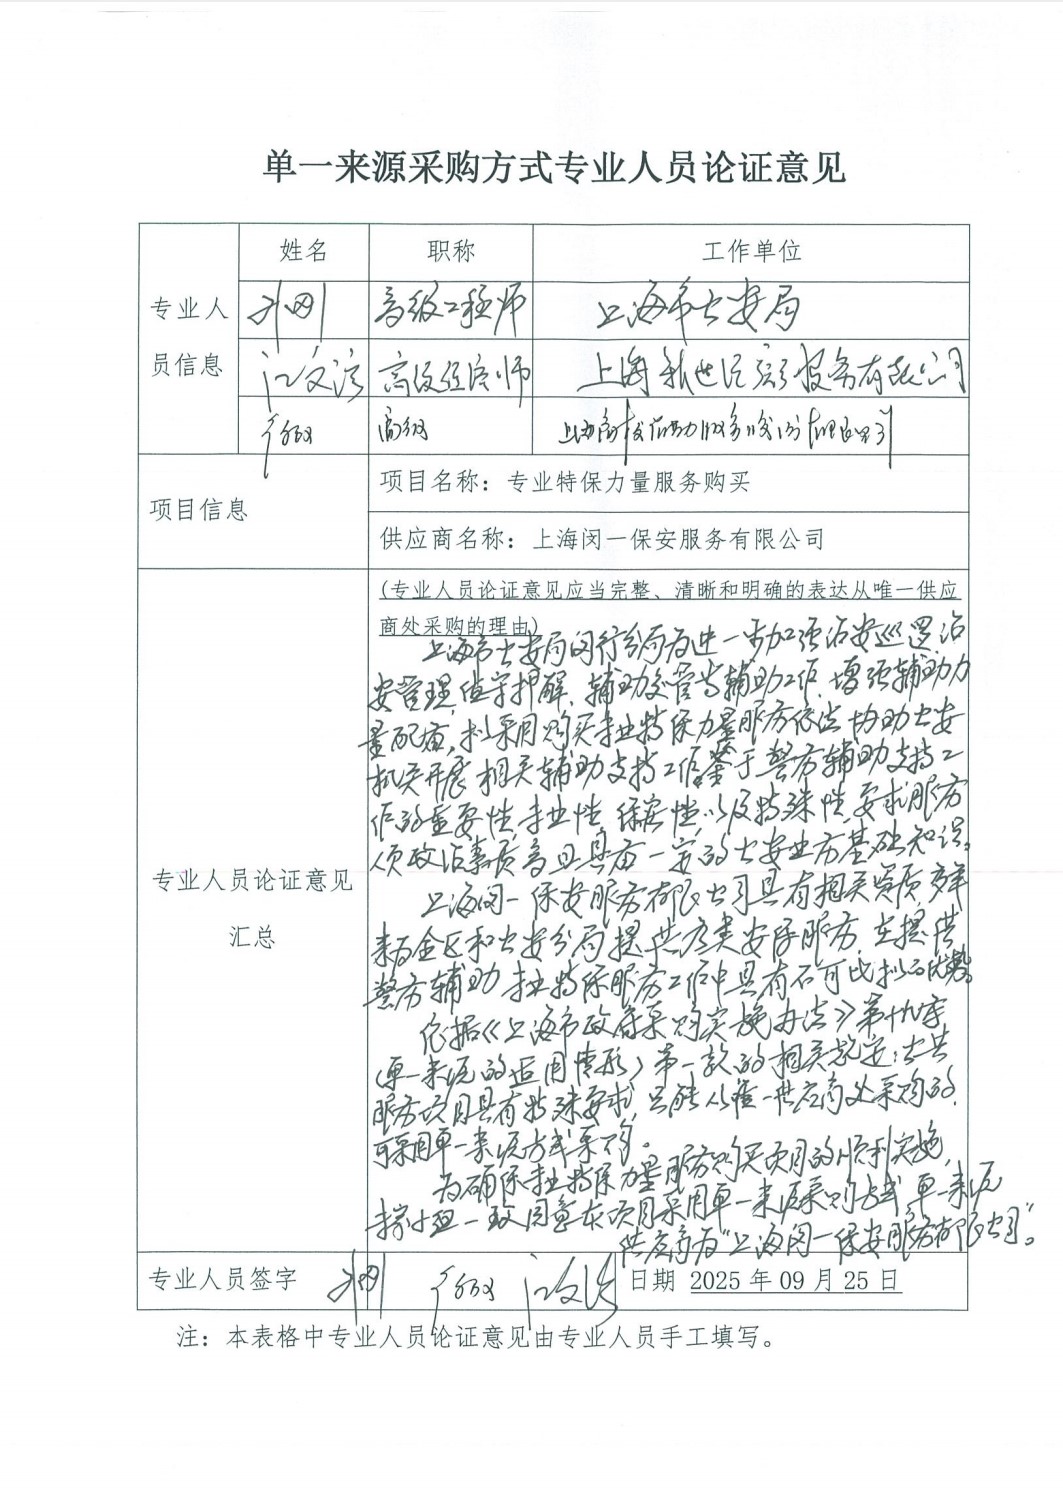 单一来源采购方式专业人员论证意见
专业人员信息
姓名 职称 工作单位
高级工程师 上海市公安局
江文 高级经济师 上海新世纪 服务有限公司
高级
项目信息
项目名称：专业特保力量服务购买
供应商名称：上海闵一保安服务有限公司
专业人员论证意见
汇总
(专业人员论证意见应当完整、清晰和明确的表达从唯一供应
商处采购的理由)
上海市公安局闵行分局为进一步加强治安巡逻、治
安管理、值守押解、辅助交管等辅助工作，增强辅助力
量配置，拟采用购买专业特保力量服务依法协助公安
机关开展相关辅助支持工作。鉴于警务辅助支持工
作的重要性、专业性、保密性，以及特殊性，要求服务
人员政治素质高且具有一定的公安业务基础知识。
上海闵一保安服务有限公司具有相关资质，多年
来为全区和公安分局提供各类安保服务，在提供
警务辅助专业特保服务工作中具有不可比拟的优势。
依据《上海市政府采购实施办法》第十九条
（单一来源的适用情形）第一款的相关规定：公共
服务项目具有特殊要求，只能从唯一供应商处采购的，
可采用单一来源方式采购。
为确保专业特保力量服务购买项目的顺利实施，
专家小组一致同意本项目采用单一来源采购方式，单一来源
供应商为“上海闵一保安服务有限公司”。
专业人员签字 江文 日期 2025 年 09 月 25 日
注：本表格中专业人员论证意见由专业人员手工填写。